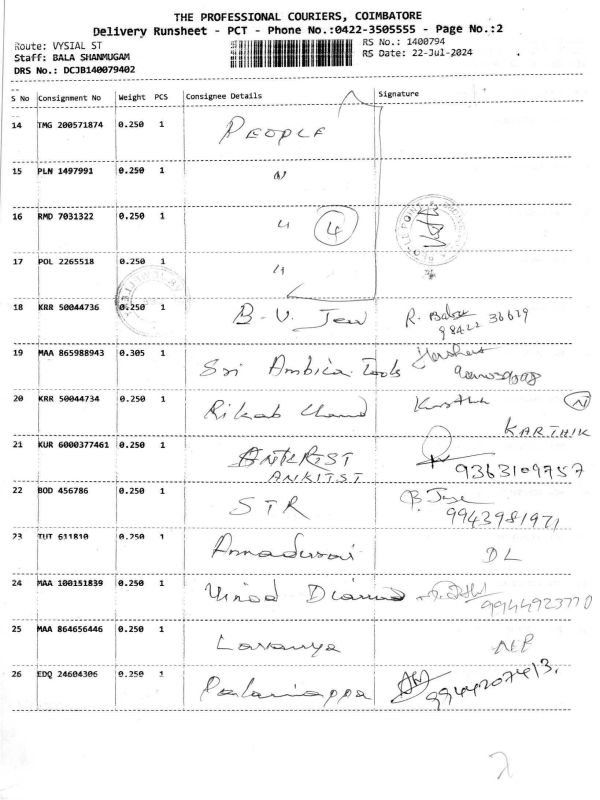 THE PROFESSIONAL COURIERS, COIMBATORE
Delivery Runsheet - PCT - Phone No.:0422-3505555 - Page No.:2
Route: VYSIAL ST
RS No.: 1400794
Staff: BALA SHANMUGAM
RS Date: 22-Jul-2024
DRS No.: DCJB140079402
S No Consignment No Weight PCS Consignee Details Signature
14 TMG 200571874 0.250 1 PEOPLE
15 PLN 1497991 0.250 1 "
16 RMD 7031322 0.250 1 " 4
17 POL 2265518 0.250 1 "
18 KRR 50044736 0.250 1 B-V. Jew R. Babu
98422 36679
19 MAA 865988943 0.305 1 Sri Ambica Tools
20 KRR 50044734 0.250 1 Rikab Chand Karthik N
KARTHIK
21 KUR 6000377461 0.250 1 ANKIST
ANKITST 9363109757
22 BOD 456786 0.250 1 STR
9943981971
23 TUT 611810 0.250 1 Annadurai DL
24 MAA 100151839 0.250 1 Vinod Diamond
9944923770
25 MAA 864656446 0.250 1 Lavanya NEP
26 EDQ 24604306 0.250 1 Palaniappa 9944207413.
2